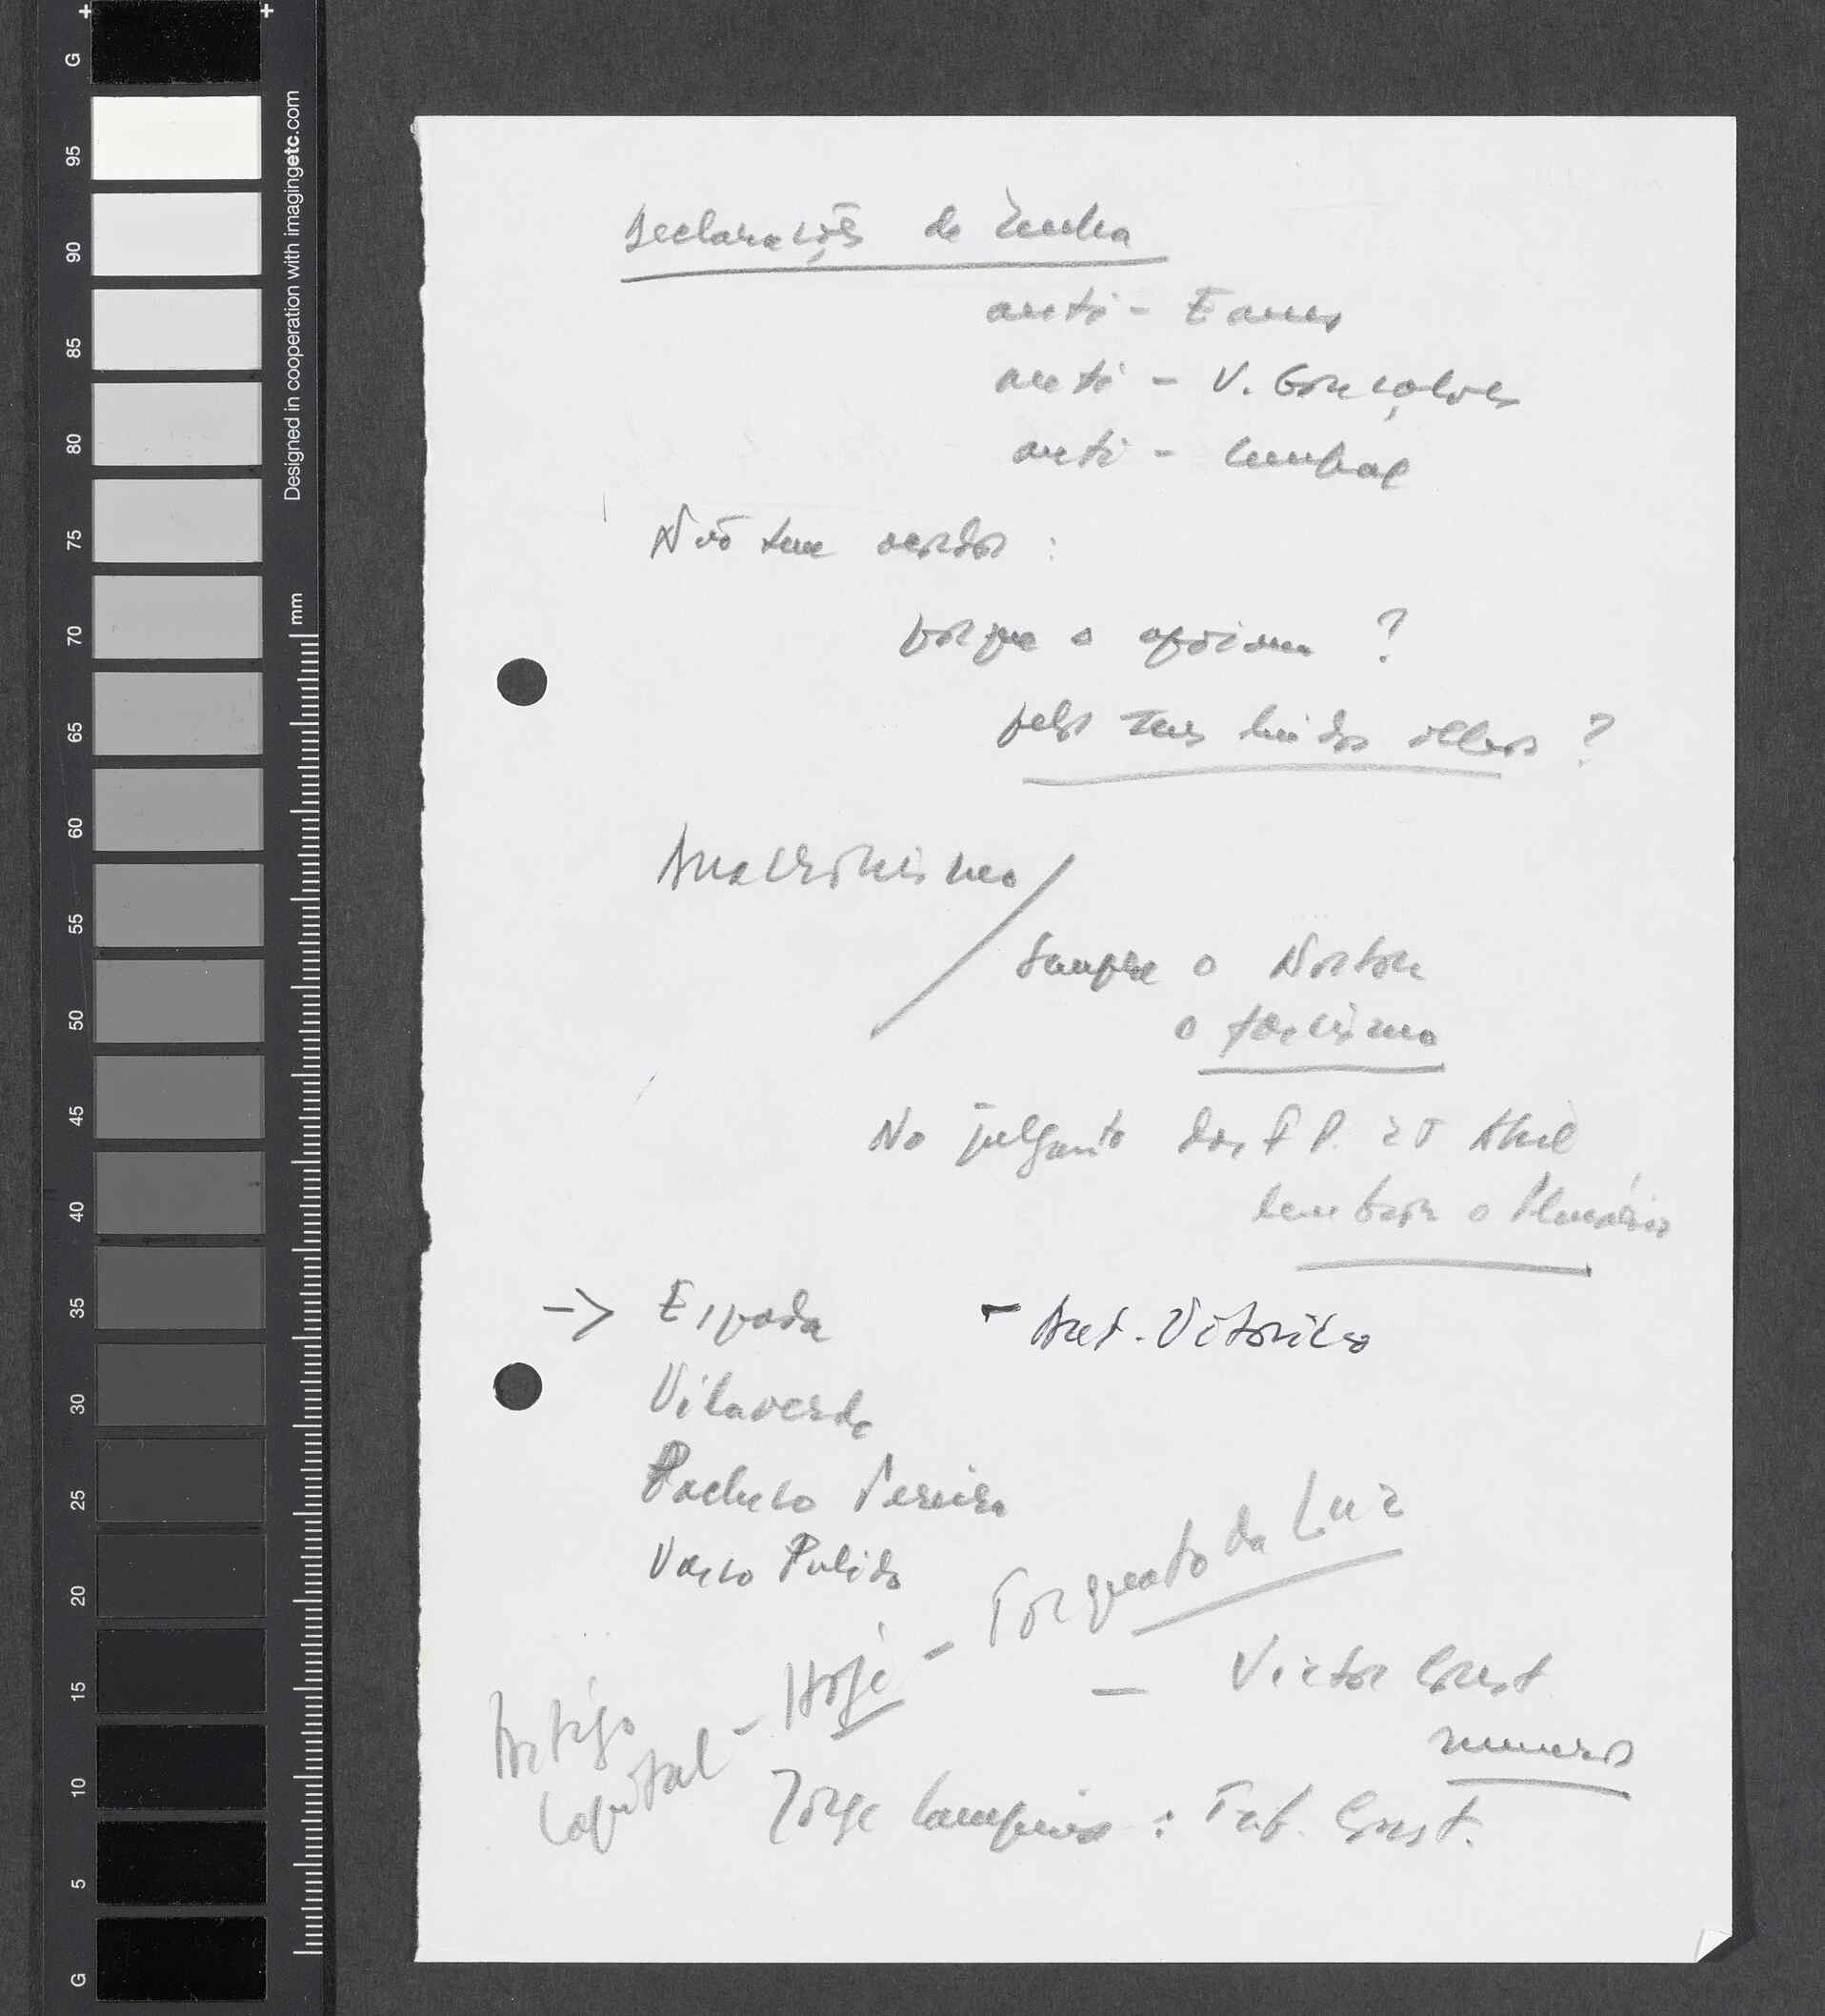 G
95
90
85
80
75
70
65
60
55
50
45
40
35
30
25
20
15
10
5
G
Designed in cooperation with imagingetc.com
mm
Declarações de Zenha
anti - Eanes
anti - V. Gonçalves
anti - Cunhal
Não tem
porque o apoiam ?
pelos seus lindos olhos ?
Anacronismo
Sempre o Norton
o fascismo
No julgamto das F P. 25 Abril
lembrar o Plenário
-> Espada
- Ant. Vitorino
Vilaverde
Pacheco Pereira
Vasco Pulido
Artigo
Capital - Hoje - Torquato da Luz
- Victor Const.
numeros
Jorge Campinos : Trib. Const.